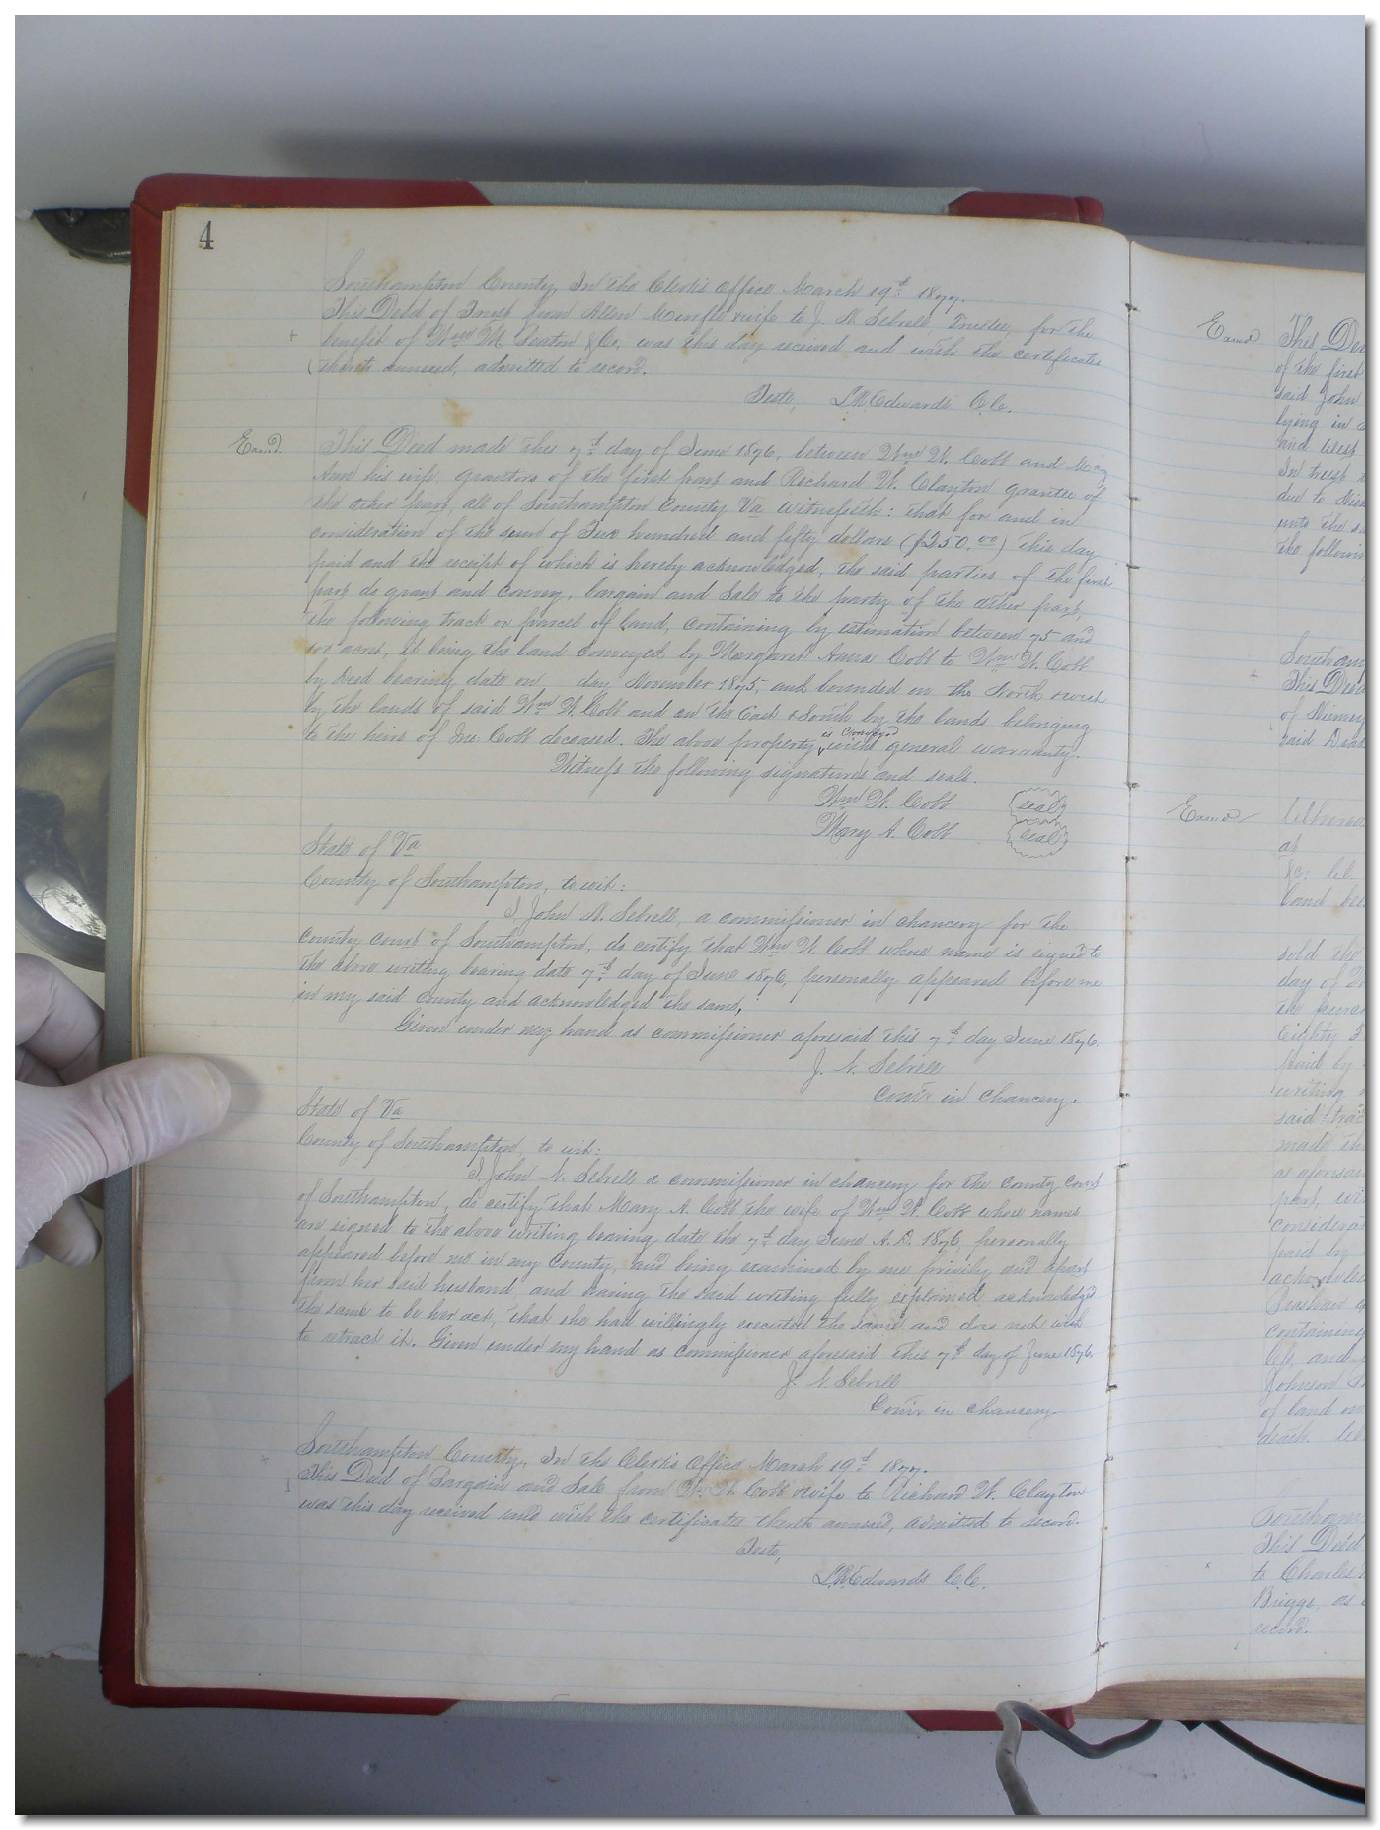 4
Southampton County, In the Clerk's Office March 19th 1877.
This Deed of Trust from Allen & wife to J. N. Sebrell, Trustee, for the
benefit of Wm M. & Co. was this day received and with the certificates
thereto annexed, admitted to record.
Teste, L.R. Edwards C.C.
Exmd.
This Deed made this 7th day of June 1876, between Wm W. Cobb and Mary
Ann his wife, grantors of the first part and Richard W. Clayton grantee of
the other part, all of Southampton County Va witnesseth: that for and in
consideration of the sum of Two hundred and fifty dollars ($250.00) this day
paid and the receipt of which is hereby acknowledged, the said parties of the first
part do grant and convey, bargain and Sale to the party of the other part,
the following track or parcel of land, containing by estimation between 75 and
100 acres, it being the land conveyed by Margaret Anna Cobb to Wm W. Cobb
by deed bearing date on day November 1875, and bounded on the North & west
by the lands of said Wm W. Cobb and on the East & South by the lands belonging
to the heirs of Jno. Cobb deceased. The above property is conveyed with general warranty.
Witness the following signatures and seals.
Wm W. Cobb seal
Mary A. Cobb seal
State of Va
County of Southampton, to wit:
I, John N. Sebrell, a commissioner in chancery for the
county court of Southampton, do certify that Wm W. Cobb whose name is signed to
the above writing bearing date 7th day of June 1876, personally appeared before me
in my said county and acknowledged the same.
Given under my hand as commissioner aforesaid this 7th day June 1876.
J. N. Sebrell
Com'r in Chancery.
State of Va
County of Southampton, to wit:
I, John N. Sebrell a commissioner in chancery for the County Court
of Southampton, do certify that Mary A. Cobb the wife of Wm W. Cobb whose names
are signed to the above writing bearing date the 7th day June A.D. 1876, personally
appeared before me in my County, and being examined by me privily and apart
from her said husband and having the said writing fully explained acknowledged
the same to be her act, that she had willingly executed the same and does not wish
to retract it. Given under my hand as commissioner aforesaid this 7th day of June 1876.
J. N. Sebrell
Com'r in chancery
Southampton County, In the Clerk's Office March 19th 1877.
This Deed of Bargain and Sale from Wm W. Cobb & wife to Richard W. Clayton
was this day received and with the certificates thereto annexed, admitted to record.
Teste,
L.R. Edwards C.C.
Exmd
This Dee
of the first
said John
lying in
and west
In trust
due to
unto the
the followin
Southam
This Deed
of
said
Exmd
at
&c.
land
sold the
day of
the
eighty
paid by
writing
said trac
made th
as aforesai
part, wi
considerat
paid by
acknowled
containing
Co, and
Johnson
of land on
death
Southam
This Deed
to Charles
Briggs, as
record.